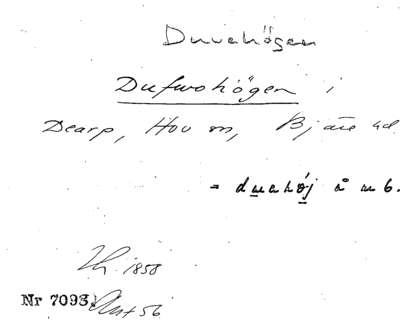 Duvehögen
Dufwohögen i
Dearp, Hov sn, Bjäre hd.
= duahøj å ub.
Th. 1858
Nr 7093. Ant 56